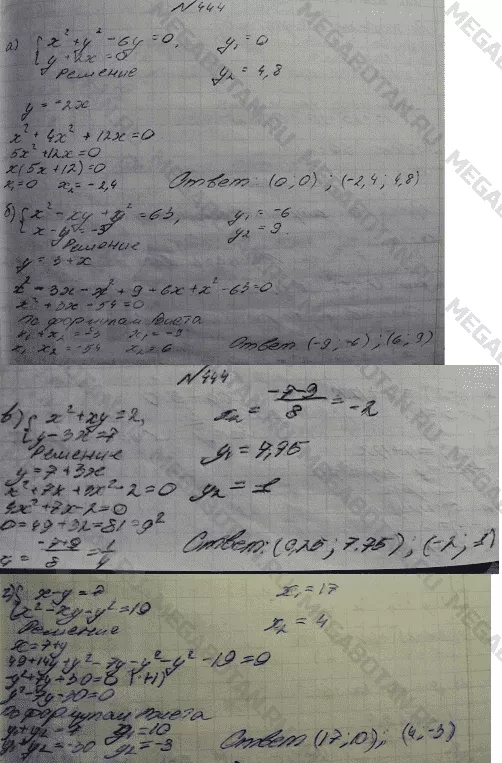 №444
а) { x² + y² - 6y = 0, y₁ = 0
{ y + 2x = 0 y₂ = 4,8
Решение
y = -2x
x² + 4x² + 12x = 0
5x² + 12x = 0
x(5x + 12) = 0
x₁ = 0 x₂ = -2,4 Ответ: (0; 0); (-2,4; 4,8)
б) { x² - xy + y² = 63, y₁ = -6
{ x - y = -3 y₂ = 9.
Решение
y = 3 + x
x² - 3x - x² + 9 + 6x + x² - 63 = 0
x² + 3x - 54 = 0
По формулам Виета
x₁ + x₂ = -3 x₁ = -9
x₁ · x₂ = -54 x₂ = 6 Ответ (-9; -6); (6; 9)
№444
в) { x² + xy = 2, x₂ = (-7-9)/8 = -2
{ y - 3x = 7
Решение y₁ = 7,75
y = 7 + 3x
x² + 7x + 3x² - 2 = 0 y₂ = 1
4x² + 7x - 2 = 0
D = 49 + 32 = 81 = 9²
x₁ = (-7+9)/8 = 1/4 Ответ: (0,25; 7.75); (-2; 1)
г) { x - y = 7 x₁ = 17
{ x² - xy - y² = 19 x₂ = 4
Решение
x = 7 + y
49 + 14y + y² - 7y - y² - y² - 19 = 0
-y² + 7y + 30 = 0 (·(-1))
y² - 7y - 30 = 0
По формулам Виета
y₁ + y₂ = 7 y₁ = 10
y₁ · y₂ = -30 y₂ = -3 Ответ (17; 10); (4, -3)
MEGABOTAN.RU